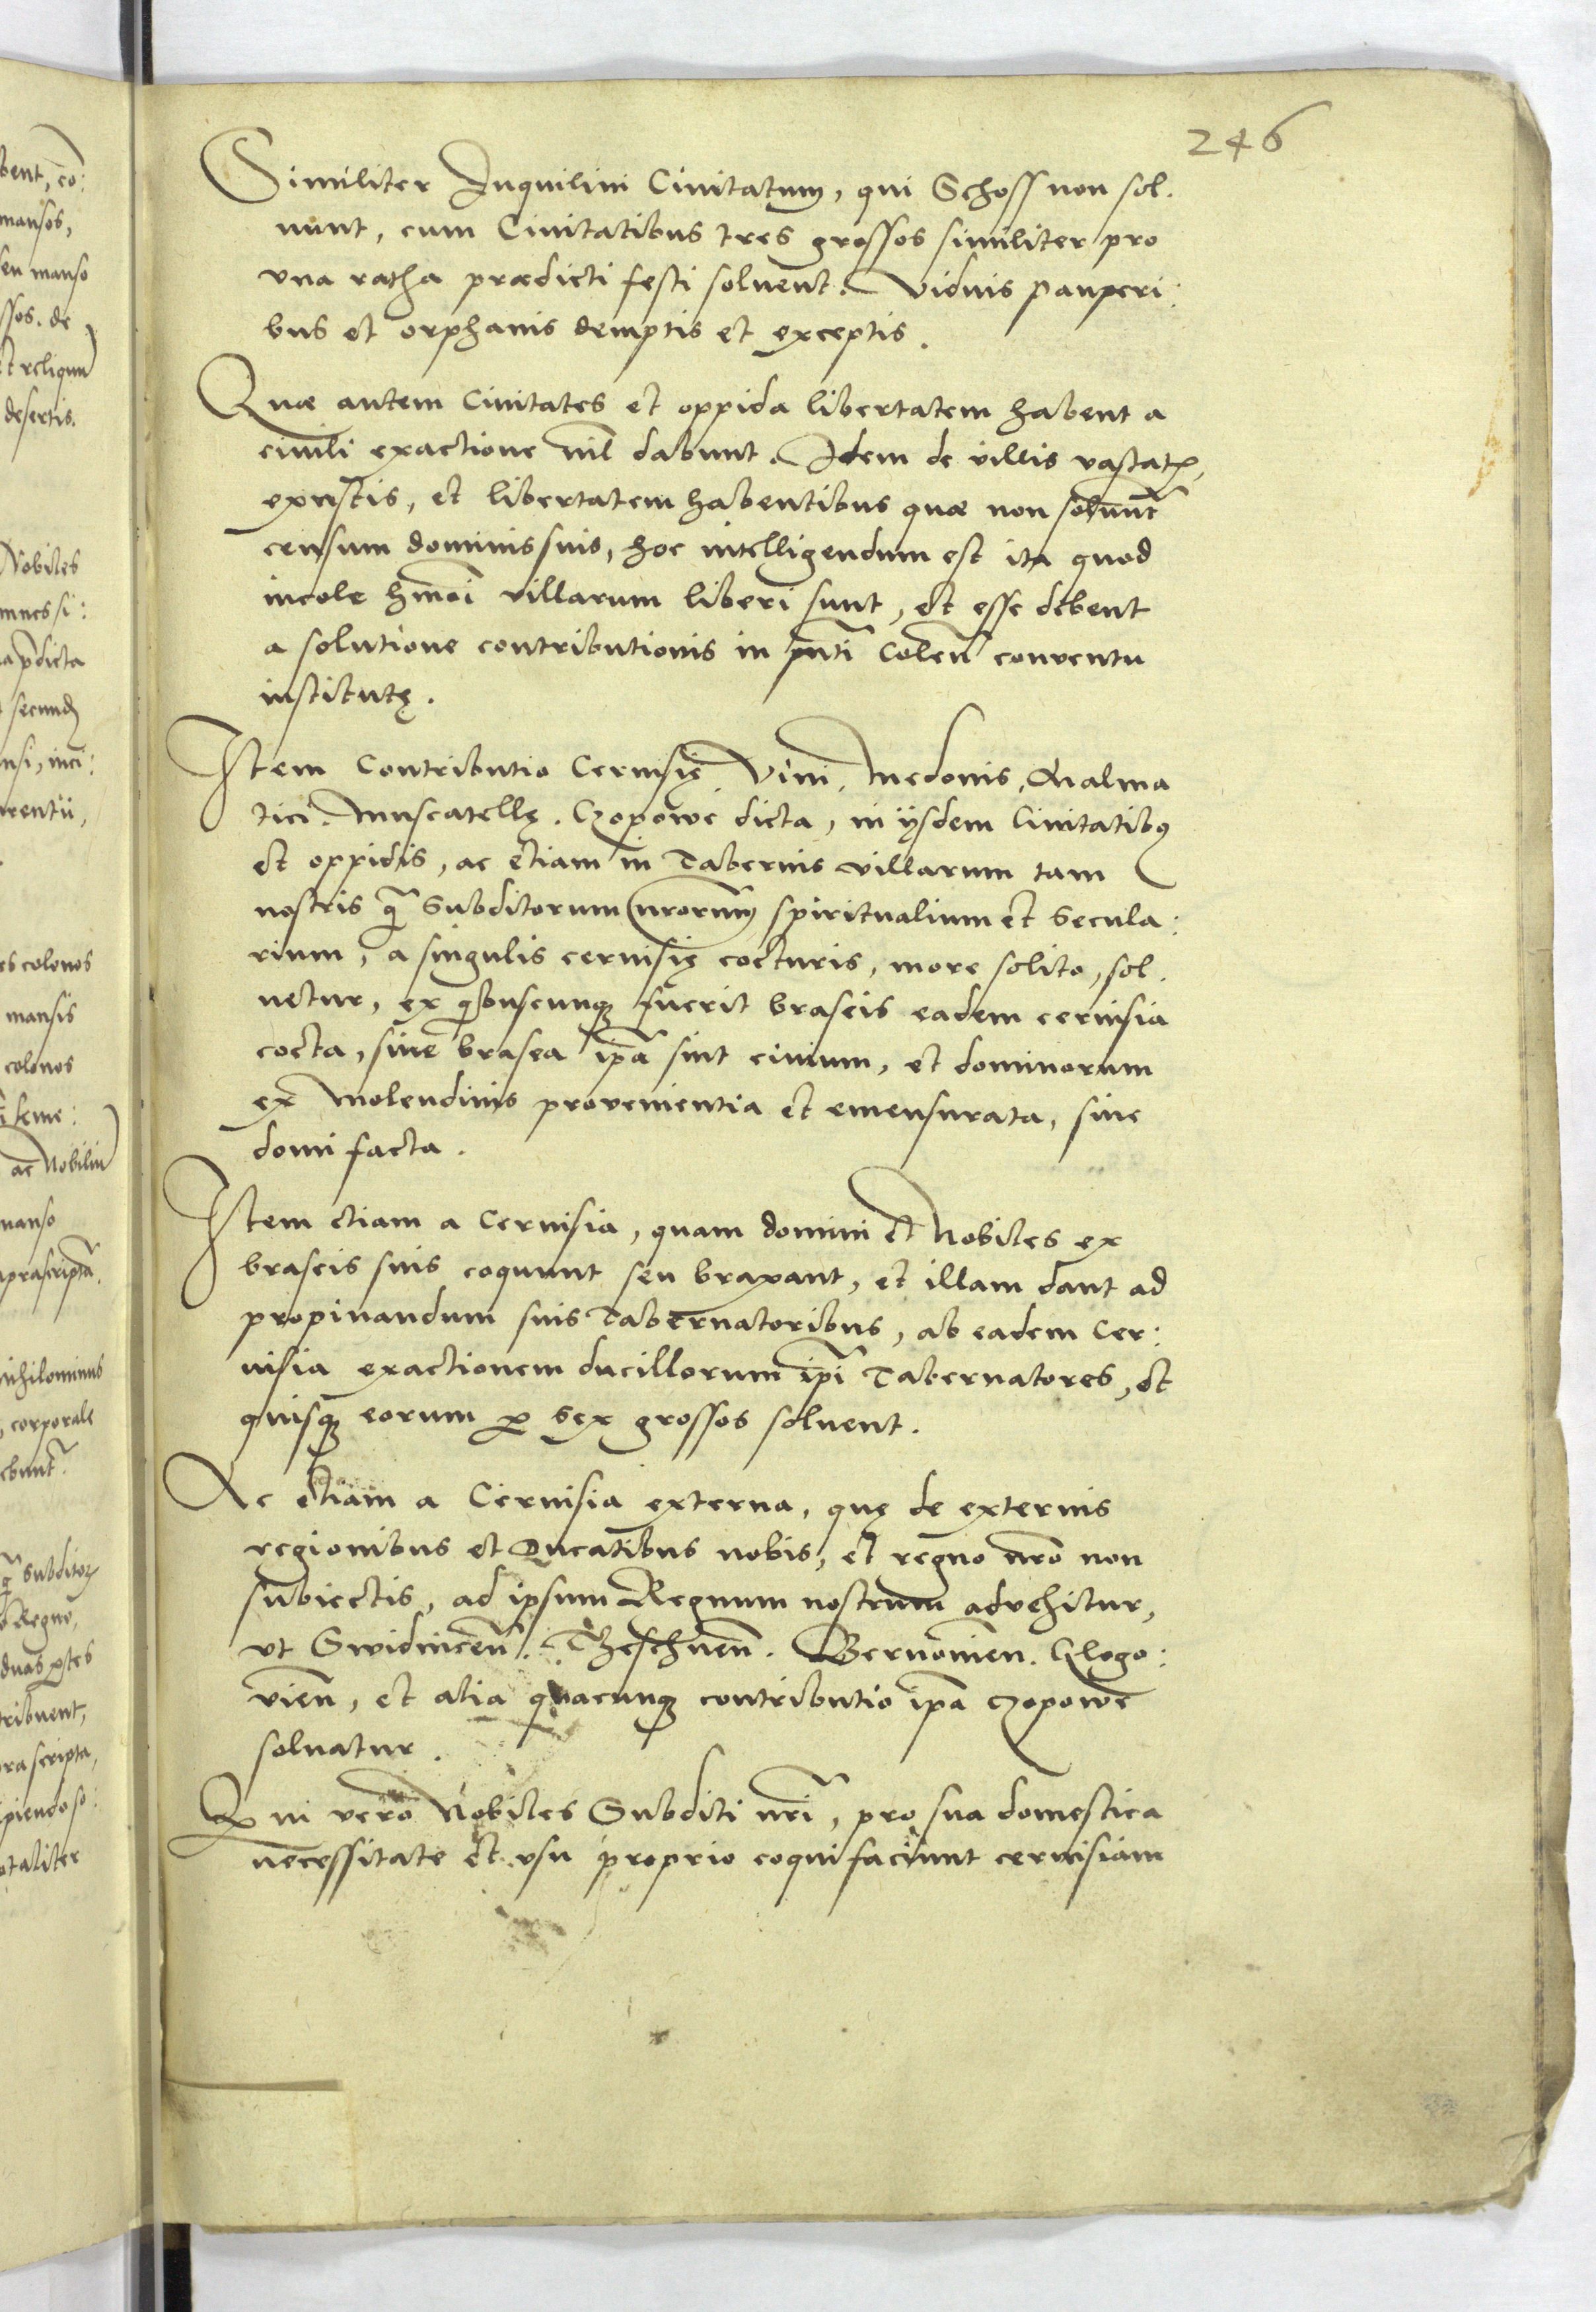 246
Similiter Inquilini Ciuitatum, qui Schoss non sol.
uunt, cum Ciuitatibus tres grossos similiter pro
vna ratha prædicti festi soluent. Viduis pauperi:
bus et orphanis demptis et exceptis.
Quæ autem Ciuitates et oppida libertatem habent a
ciuili exactione nil dabunt. Idem de villis vastatis,
exustis, et libertatem habentibus quæ non soluunt
censum dominis suis, hoc intelligendum est ita quod
incole hmōi villarum liberi sunt, et esse debent
a solutione contributionis in pn̄ti Colen̄ conuentu
institutę.
Item Contributio Ceruisię Vini, Medonis, Malma
tici. Muscatellę. Czopowe dicta, in ijsdem Ciuitatibus
et oppidis, ac etiam in Tabernis villarum tam
nostris q̄ Subditorum nrorum̄ spiritualium et Secula:
rium, a singulis ceruisię cocturis, more solito, sol.
uetur, ex q̄buscunq̨ fuerit braseis eadem ceruisia
cocta, siue brasea ip̄a sint ciuium, et dominorum
ex Molendinis prouenientia et emensurata, siue
domi facta.
Item etiam a Ceruisia, quam domini et Nobiles ex
braseis suis coquunt seu braxant, et illam dant ad
propinandum suis Tabernatoribus, ab eadem Cer:
uisia exactionem ducillorum ip̄i Tabernatores, et
quisq̨ eorum p̱ sex grossos soluent.
Ac etiam a Ceruisia externa, quę de externis
regionibus et Ducatibus nobis, et regno nrō non
subiectis, ad ipsum Regnum nostrum aduehitur,
vt Swidnicen̄. Theschnen̄. Bernouien. Glogo:
uien̄, et alia quacunq̨ contributio ip̄a czopowe
soluatur.
Qui vero Nobiles Subditi nrī, pro sua domestica
necessitate et vsu proprio coqui faciunt ceruisiam